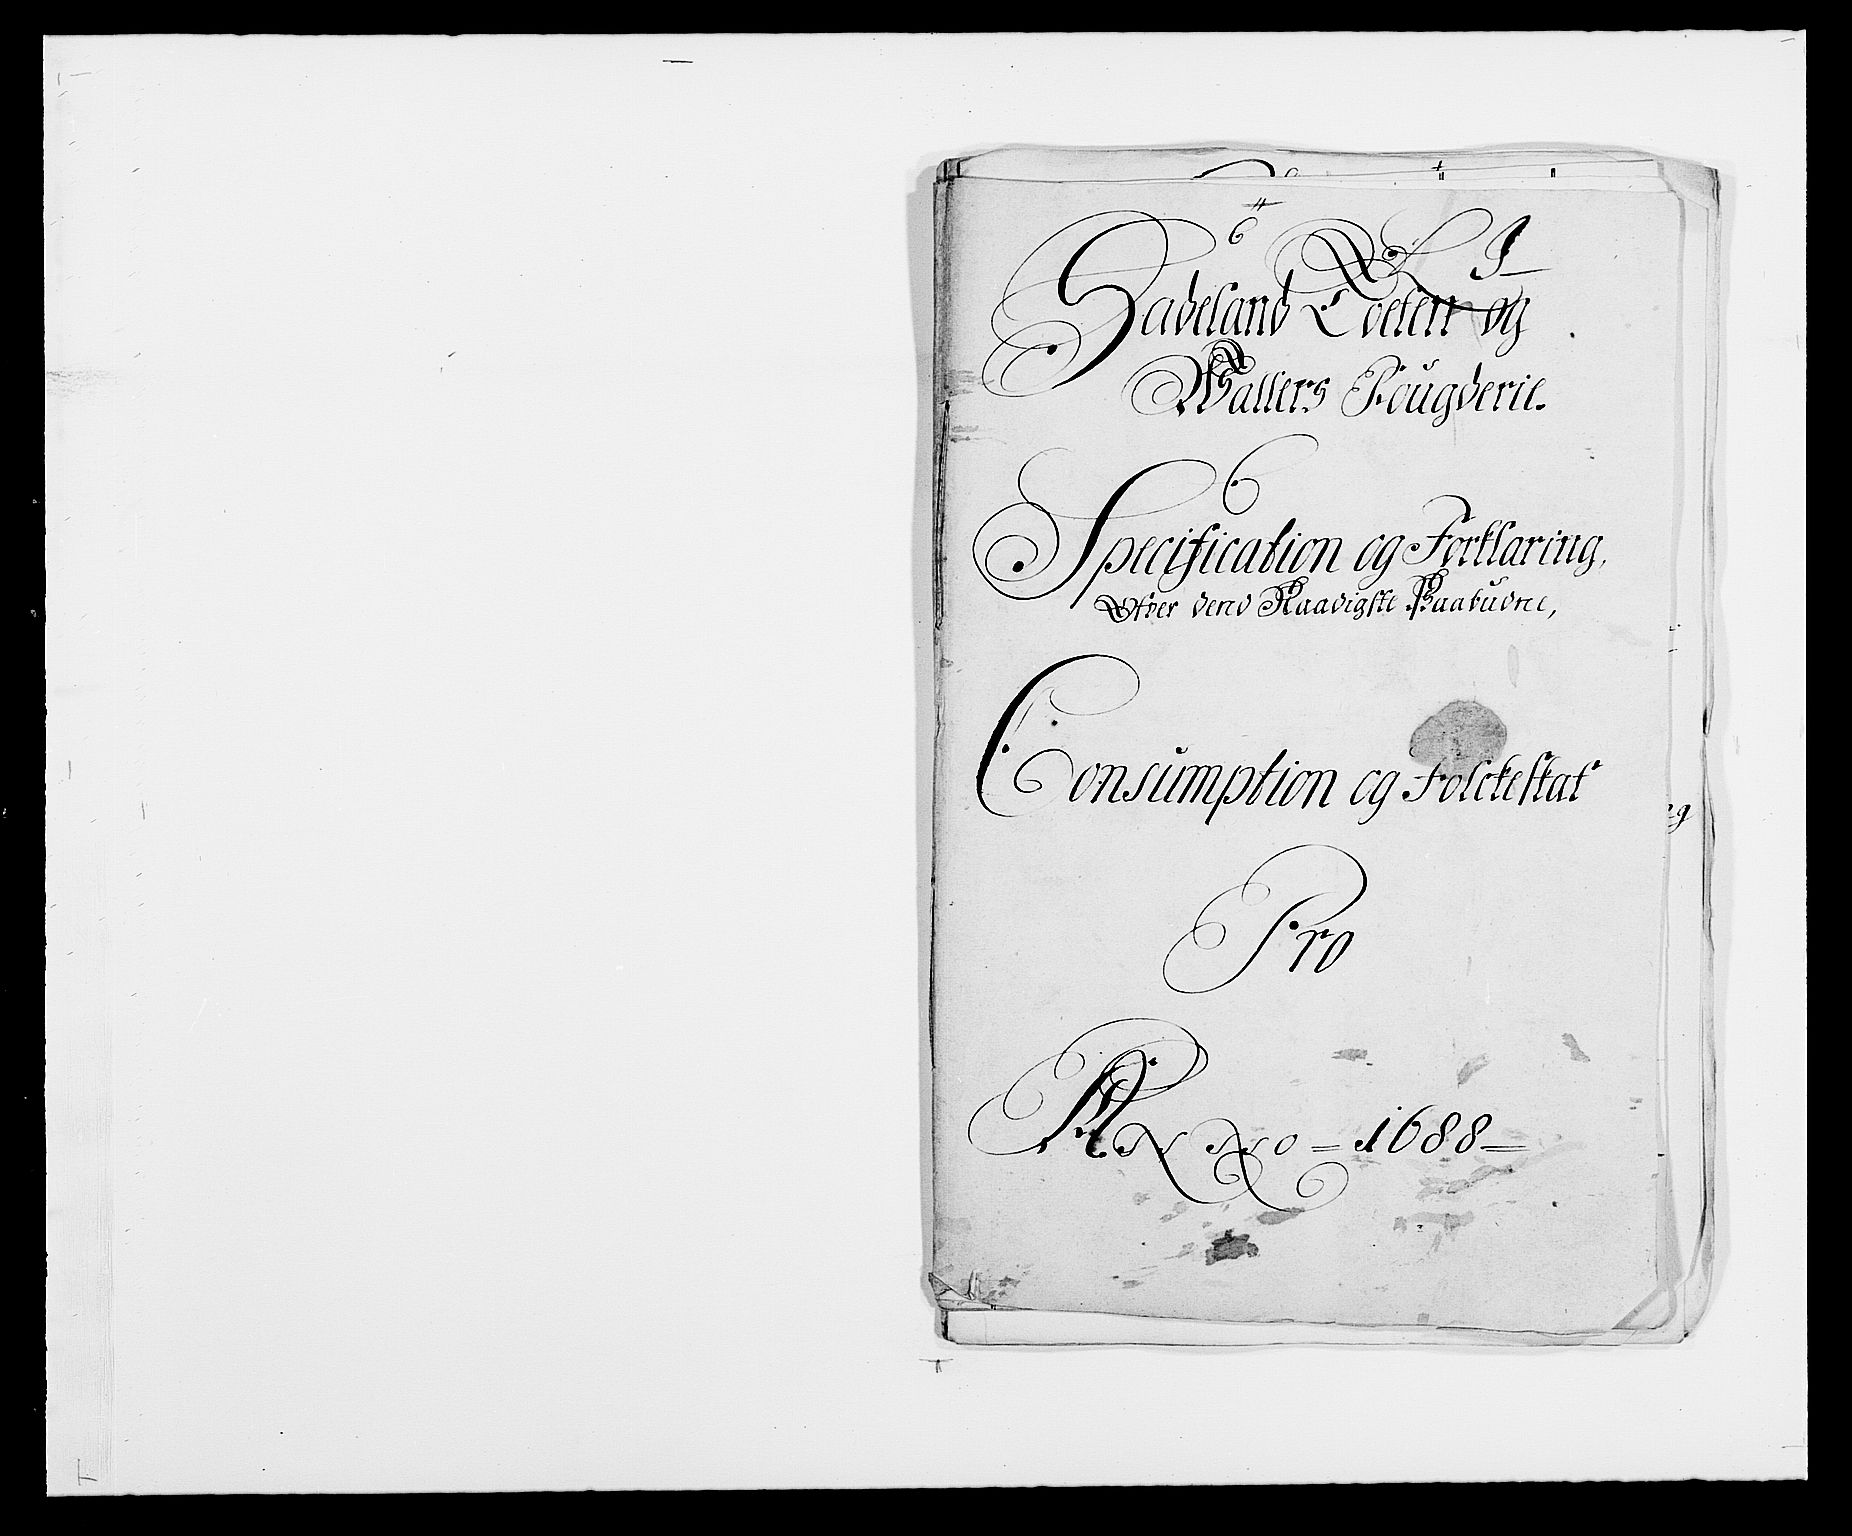 6
Hadeland Toeten og
Wallers Fougderie.
Specification og Forklaring,
Ofver dend Naadigste Paabudne,
Consumption og Folckeskat
Pro
ANNO = 1688 =